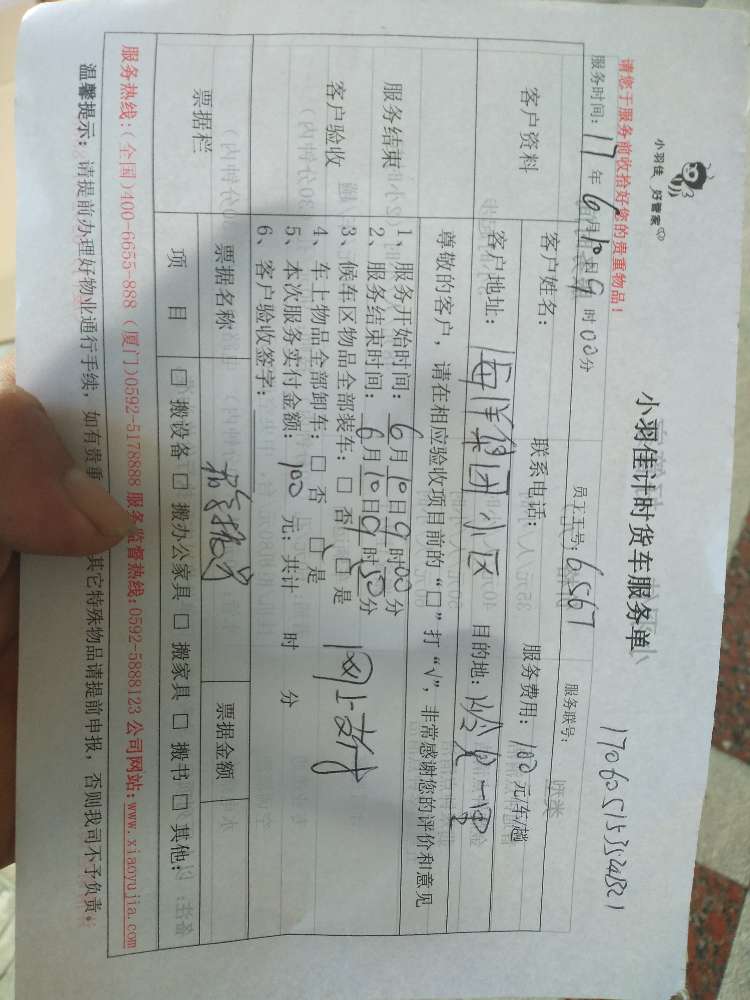 小羽佳 好管家
小羽佳计时货车服务单
请您于服务前收拾好您的贵重物品!
服务时间: 17 年 6 月 10 日 9 时 00 分 员工工号: 6567 服务联号:
客户资料
客户姓名: 联系电话: 服务费用: 100 元/车/趟
客户地址: 海洋集团小区 目的地:
尊敬的客户,请在相应验收项目前的“口”打“√”,非常感谢您的评价和意见
服务结束
客户验收
1、服务开始时间: 6 月 10 日 9 时 00 分
2、服务结束时间: 6 月 10 日 9 时 50 分
3、候车区物品全部装车: □ 否 □ 是
4、车上物品全部卸车: □ 否 □ 是 网上支付
5、本次服务实付金额: 100 元; 共计 时 分
6、客户验收签字:
票据栏
票据名称 票据金额
项目 □ 搬设备 □ 搬办公家具 □ 搬家具 □ 搬书 □ 其他:
服务热线:(全国)400-6655-888 (厦门)0592-5178888 服务监督热线:0592-5888123 公司网站:www.xiaoyujia.com
温馨提示: 请提前办理好物业通行手续, 如有贵重 其它特殊物品请提前申报, 否则我司不予负责。